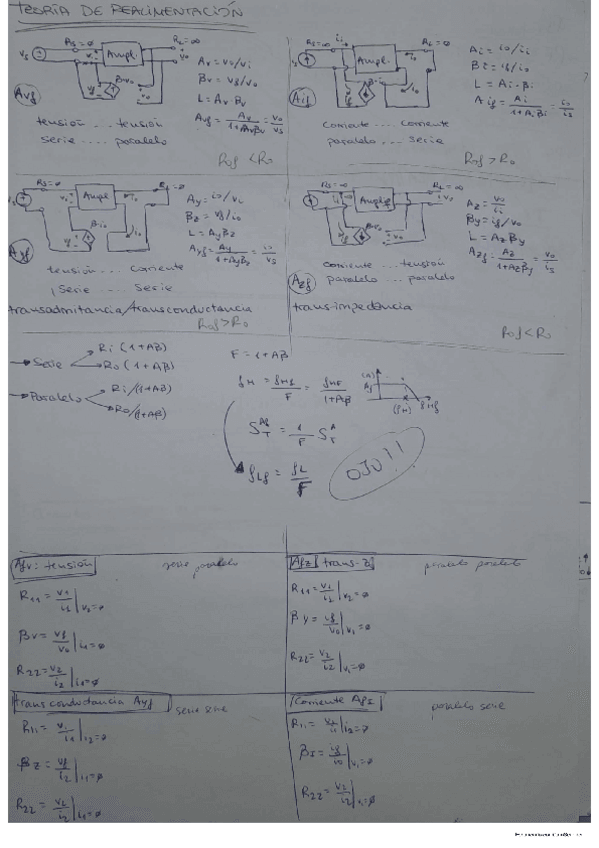 TEORÍA DE REALIMENTACIÓN
Rs=∅ RL=∞
Ampl.
Avf
Av = vo/vi
βv = vf/vo
L = Av βv
Avf = Av/(1+Avβv) = vo/vs
tensión .... tensión
serie .... paralelo
Rof < Ro
Rs=∞ ii RL=∅
Ampl.
Aif
Ai = io/ii
βi = if/io
L = Ai·βi
Aif = Ai/(1+Aiβi) = io/is
corriente ... corriente
paralelo ... serie
Rof > Ro
Rs=∅ RL=∅
Ampl
Ayf
Ay = io/vi
βz = vf/io
L = Ayβz
Ayf = Ay/(1+Ayβz) = io/vs
tensión .... corriente
serie .... serie
transadmitancia/transconductancia
Rof > Ro
Rs=∞ RL=∞
Ampl
Azf
Az = vo/ii
βy = if/vo
L = Azβy
Azf = Az/(1+Azβy) = vo/is
corriente ... tensión
paralelo ... paralelo
trans-impedancia
Rof < Ro
→ Serie
Ri (1+Aβ)
Ro (1+Aβ)
→ Paralelo
Ri/(1+Aβ)
Ro/(1+Aβ)
F = 1+Aβ
fH = fHf/F = fHf/(1+Aβ)
S = 1/F S
fLf = fL/F
OJO!!
Afv: tensión serie paralelo
R11 = v1/i1 |v2=∅
βv = vf/vo |i1=∅
R22 = v2/i2 |i1=∅
Afz trans-Z paralelo paralelo
R11 = v1/i1 |v2=∅
βy = if/vo |v1=∅
R22 = v2/i2 |v1=∅
transconductancia Ayf serie serie
R11 = v1/i1 |i2=∅
βz = vf/i2 |i1=∅
R22 = v2/i2 |i1=∅
Corriente AfI paralelo serie
R11 = v1/i1 |i2=∅
βI = if/io |v1=∅
R22 = v2/i2 |v1=∅